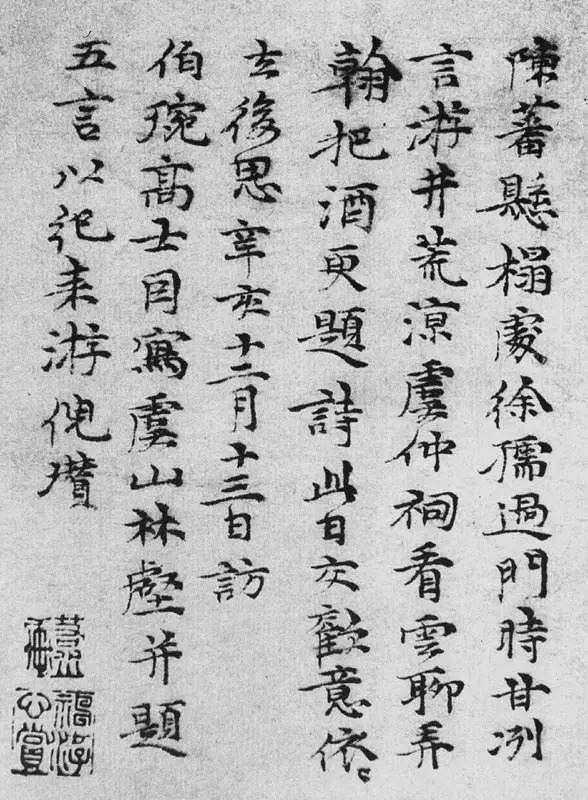 陳蕃懸榻處徐孺過門時甘冽
言游井荒涼虞仲祠看雲聊弄
翰把酒更題詩此日交歡意依〻
去後思辛亥十二月十三日訪
伯琬高士因寫虞山林壑并題
五言以紀来游倪瓚